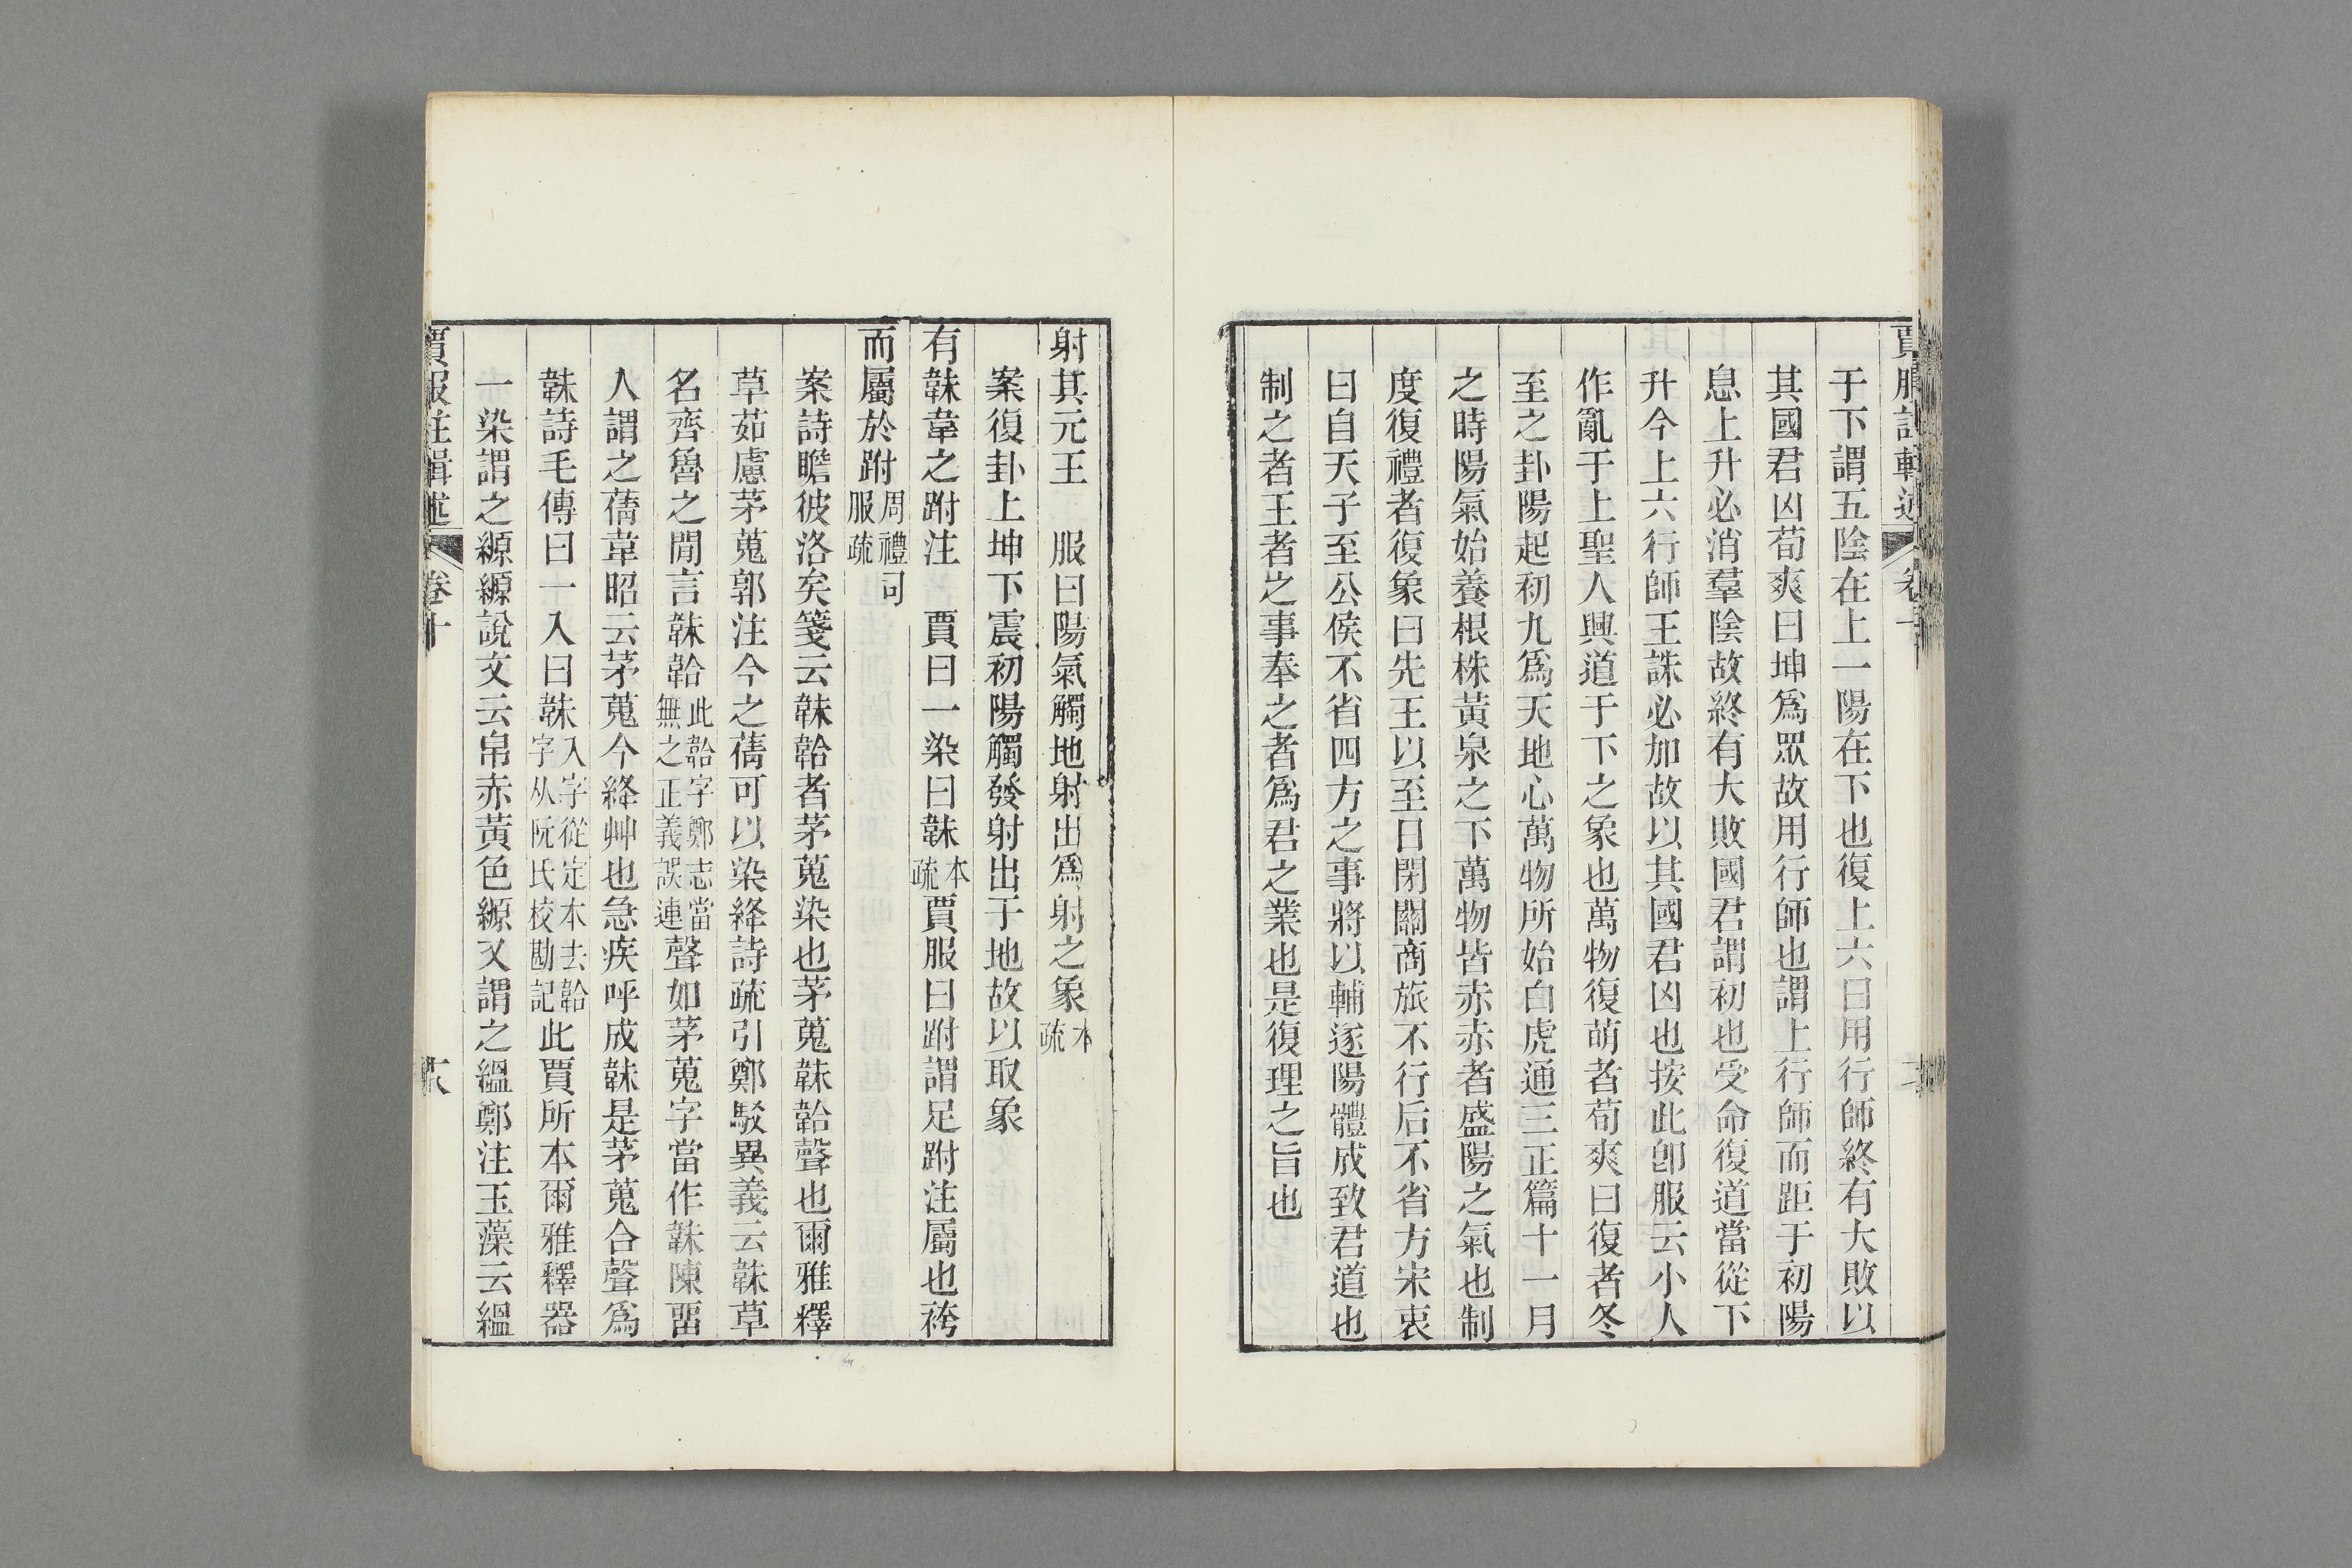 于下謂五陰在上一陽在下也復上六曰用行師終有大敗以
其國君凶荀爽曰坤爲眾故用行師也謂上行師而距于初陽
息上升必消羣陰故終有大敗國君謂初也受命復道當從下
升今上六行師王誅必加故以其國君凶也按此卽服云小人
作亂于上聖人興道于下之象也萬物復萌者荀爽曰復者冬
至之卦陽起初九爲天地心萬物所始白虎通三正篇十一月
之時陽氣始養根株黃泉之下萬物皆赤赤者盛陽之氣也制
度復禮者復象曰先王以至日閉關商旅不行后不省方宋衷
曰自天子至公侯不省四方之事將以輔遂陽體成致君道也
制之者王者之事奉之者爲君之業也是復理之旨也
射其元王　服曰陽氣觸地射出爲射之象本疏
案復卦上坤下震初陽觸發射出于地故以取象
有韎韋之跗注　賈曰一染曰韎本疏賈服曰跗謂足跗注屬也袴
而屬於跗周禮司服疏
案詩瞻彼洛矣箋云韎韐者茅蒐染也茅蒐韎韐聲也爾雅釋
草茹藘茅蒐郭注今之蒨可以染絳詩疏引鄭駁異義云韎草
名齊魯之閒言韎韐此韐字鄭志當無之正義誤連聲如茅蒐字當作韎陳畱
人謂之蒨韋昭云茅蒐今絳艸也急疾呼成韎是茅蒐合聲爲
韎詩毛傳曰一入曰韎入字從定本去韐字从阮氏校勘記此賈所本爾雅釋器
一染謂之縓縓說文云帛赤黃色縓又謂之縕鄭注玉藻云縕
賈服注輯述　卷十